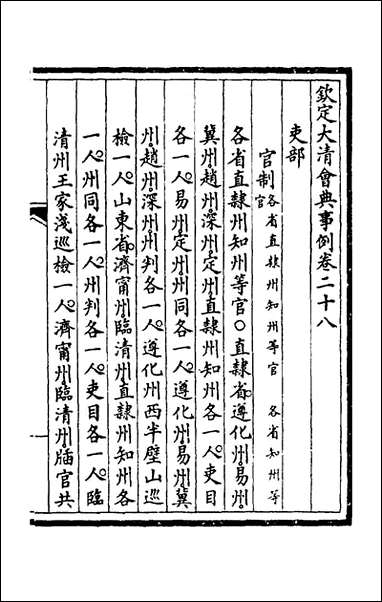 欽定大清會典事例卷二十八
吏部
官制 各省直隸州知州等官 各省知州等
官
各省直隸州知州等官○直隸省遵化州易州
冀州趙州深州定州直隸州知州各一人吏目
各一人易州定州州同各一人遵化州易州冀
州趙州深州州判各一人遵化州西半壁山巡
檢一人山東省濟甯州臨清州直隸州知州各
一人州同各一人州判各一人吏目各一人臨
清州王家淺巡檢一人濟甯州臨清州牐官共